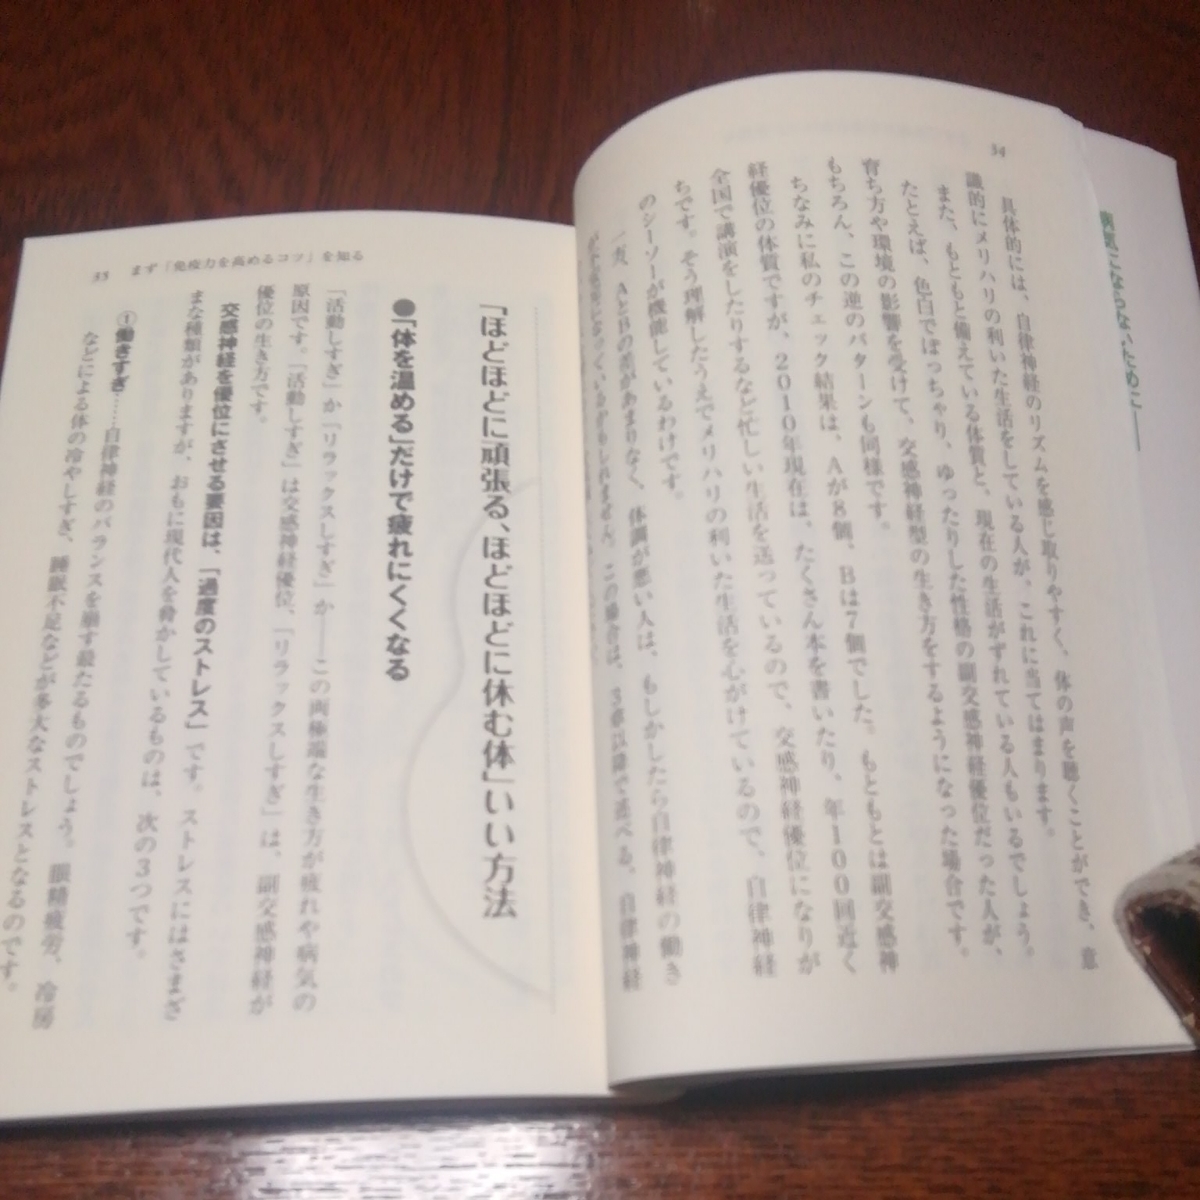 病気にならないために――
34
具体的には、自律神経のリズムを感じ取りやすく、体の声を聴くことができ、意
識的にメリハリの利いた生活をしている人が、これに当てはまります。
また、もともと備えている体質と、現在の生活がずれている人もいるでしょう。
たとえば、色白でぽっちゃり、ゆったりした性格の副交感神経優位だった人が、
育ち方や環境の影響を受けて、交感神経型の生き方をするようになった場合です。
もちろん、この逆のパターンも同様です。
ちなみに私のチェック結果は、Aが8個、Bは7個でした。もともとは副交感神
経優位の体質ですが、2010年現在は、たくさん本を書いたり、年100回近く
全国で講演をしたりするなど忙しい生活を送っているので、交感神経優位になりが
ちです。そう理解したうえでメリハリの利いた生活を心がけているので、自律神経
のシーソーが機能しているわけです。
一方、AとBの差があまりなく、体調が悪い人は、もしかしたら自律神経の働き
この場合は、3章以降で述べる、自律神経
「ほどほどに頑張る、ほどほどに休む体」いい方法
●「体を温める」だけで疲れにくくなる
「活動しすぎ」か「リラックスしすぎ」か――この両極端な生き方が疲れや病気の
原因です。「活動しすぎ」は交感神経優位、「リラックスしすぎ」は、副交感神経が
優位の生き方です。
交感神経を優位にさせる要因は、「過度のストレス」です。ストレスにはさまざ
まな種類がありますが、おもに現代人を脅かしているものは、次の3つです。
①働きすぎ……自律神経のバランスを崩す最たるものでしょう。眼精疲労、冷房
などによる体の冷やしすぎ、睡眠不足などが多大なストレスとなるのです。
35 まず「免疫力を高めるコツ」を知る